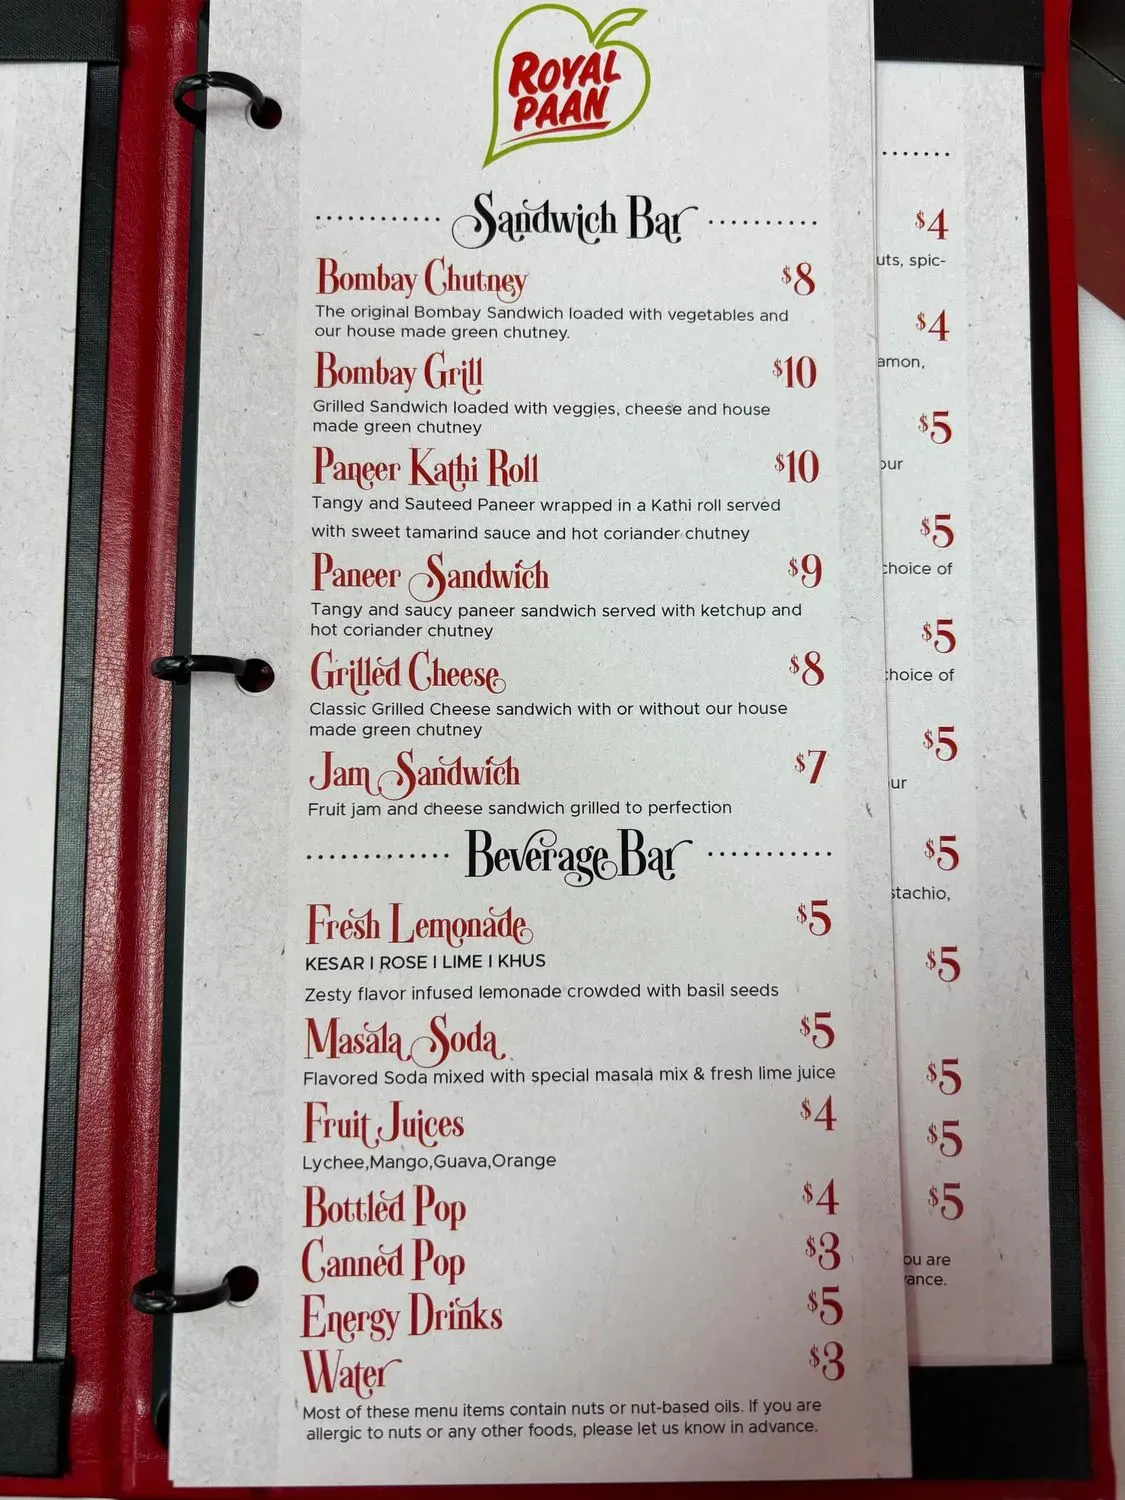 ROYAL
PAAN
Sandwich Bar
Bombay Chutney $8
The original Bombay Sandwich loaded with vegetables and
our house made green chutney.
Bombay Grill $10
Grilled Sandwich loaded with veggies, cheese and house
made green chutney
Paneer Kathi Roll $10
Tangy and Sauteed Paneer wrapped in a Kathi roll served
with sweet tamarind sauce and hot coriander chutney
Paneer Sandwich $9
Tangy and saucy paneer sandwich served with ketchup and
hot coriander chutney
Grilled Cheese $8
Classic Grilled Cheese sandwich with or without our house
made green chutney
Jam Sandwich $7
Fruit jam and cheese sandwich grilled to perfection
Beverage Bar
Fresh Lemonade $5
KESAR I ROSE I LIME I KHUS
Zesty flavor infused lemonade crowded with basil seeds
Masala Soda $5
Flavored Soda mixed with special masala mix & fresh lime juice
Fruit Juices $4
Lychee,Mango,Guava,Orange
Bottled Pop $4
Canned Pop $3
Energy Drinks $5
Water $3
Most of these menu items contain nuts or nut-based oils. If you are
allergic to nuts or any other foods, please let us know in advance.
$4
uts, spic-
$4
amon,
$5
our
$5
choice of
$5
choice of
$5
ur
$5
stachio,
$5
$5
$5
$5
ou are
vance.